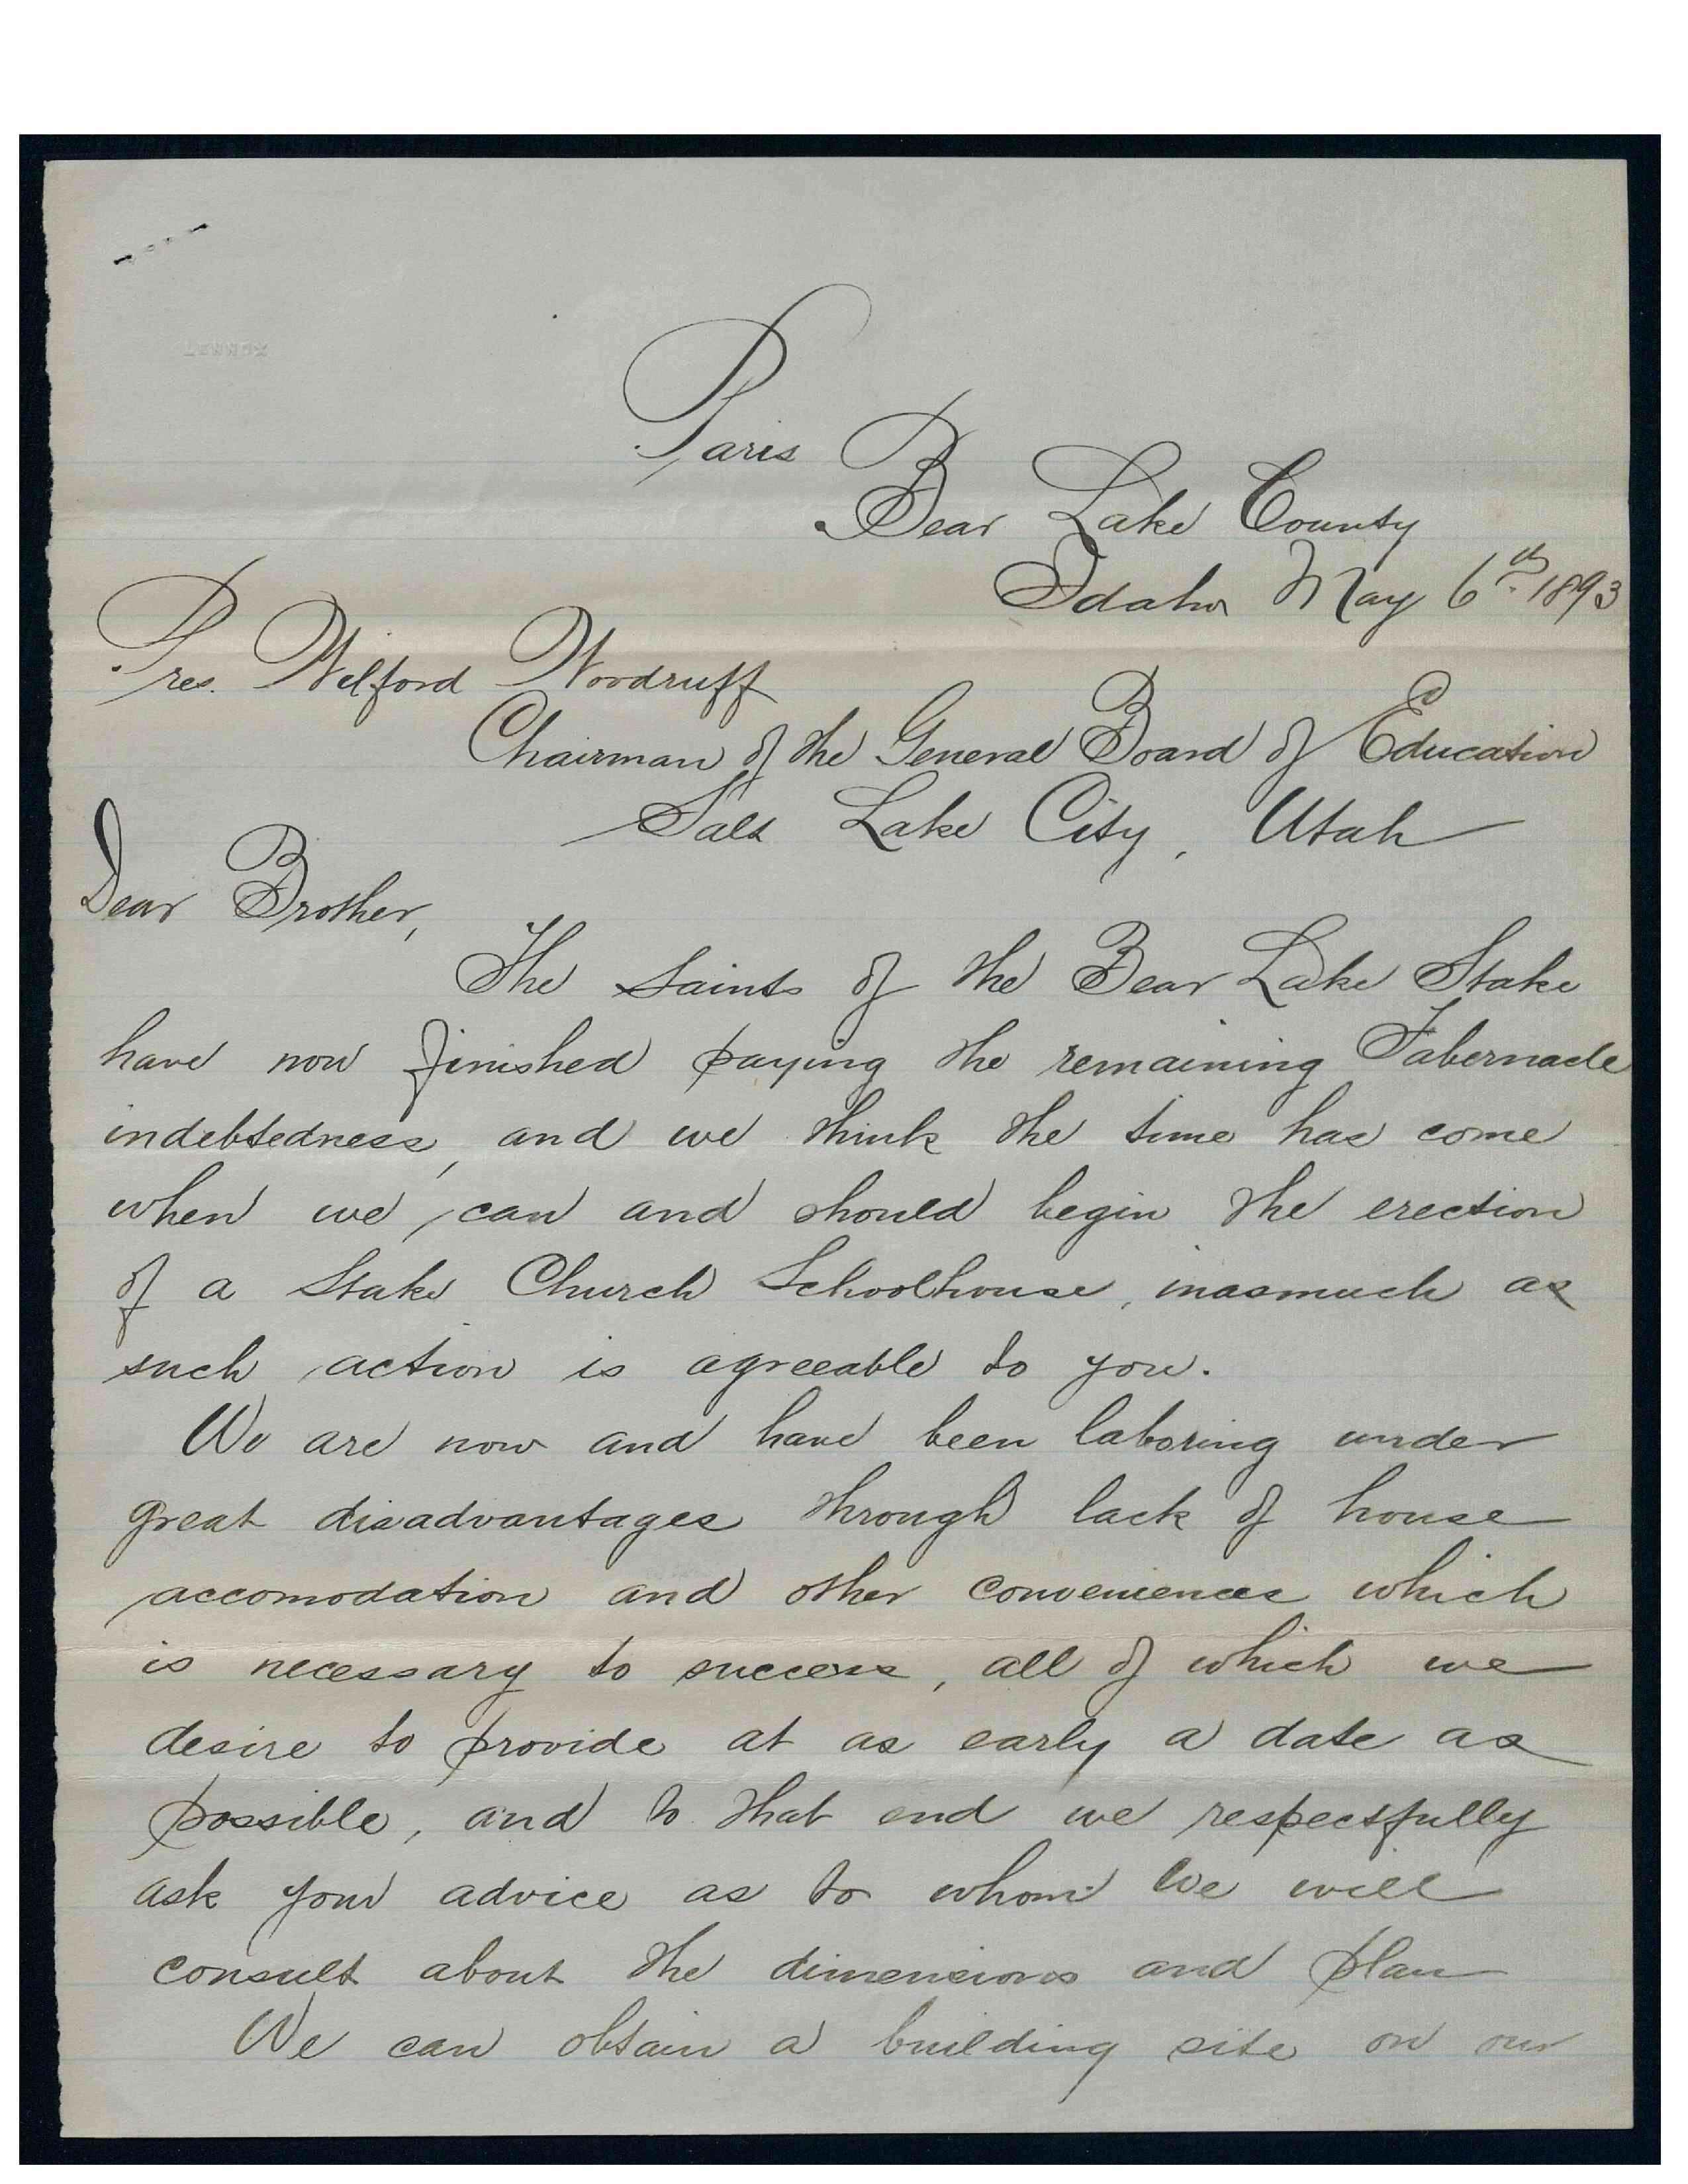 Paris
Bear Lake County
Idaho May 6th 1893
Pres. Wilford Woodruff
Chairman of the General Board of Education
Salt Lake City, Utah
Dear Brother,
The Saints of the Bear Lake Stake
have now finished paying the remaining Tabernacle
indebtedness, and we think the time has come
when we can and should begin the erection
of a Stake Church Schoolhouse, inasmuch as
such action is agreeable to you.
We are now and have been laboring under
great disadvantages through lack of house
accomodation and other conveniences which
is necessary to success, all of which we
desire to provide at as early a date as
possible, and to that end we respectfully
ask your advice as to whom we will
consult about the dimensions and plan
We can obtain a building site on our